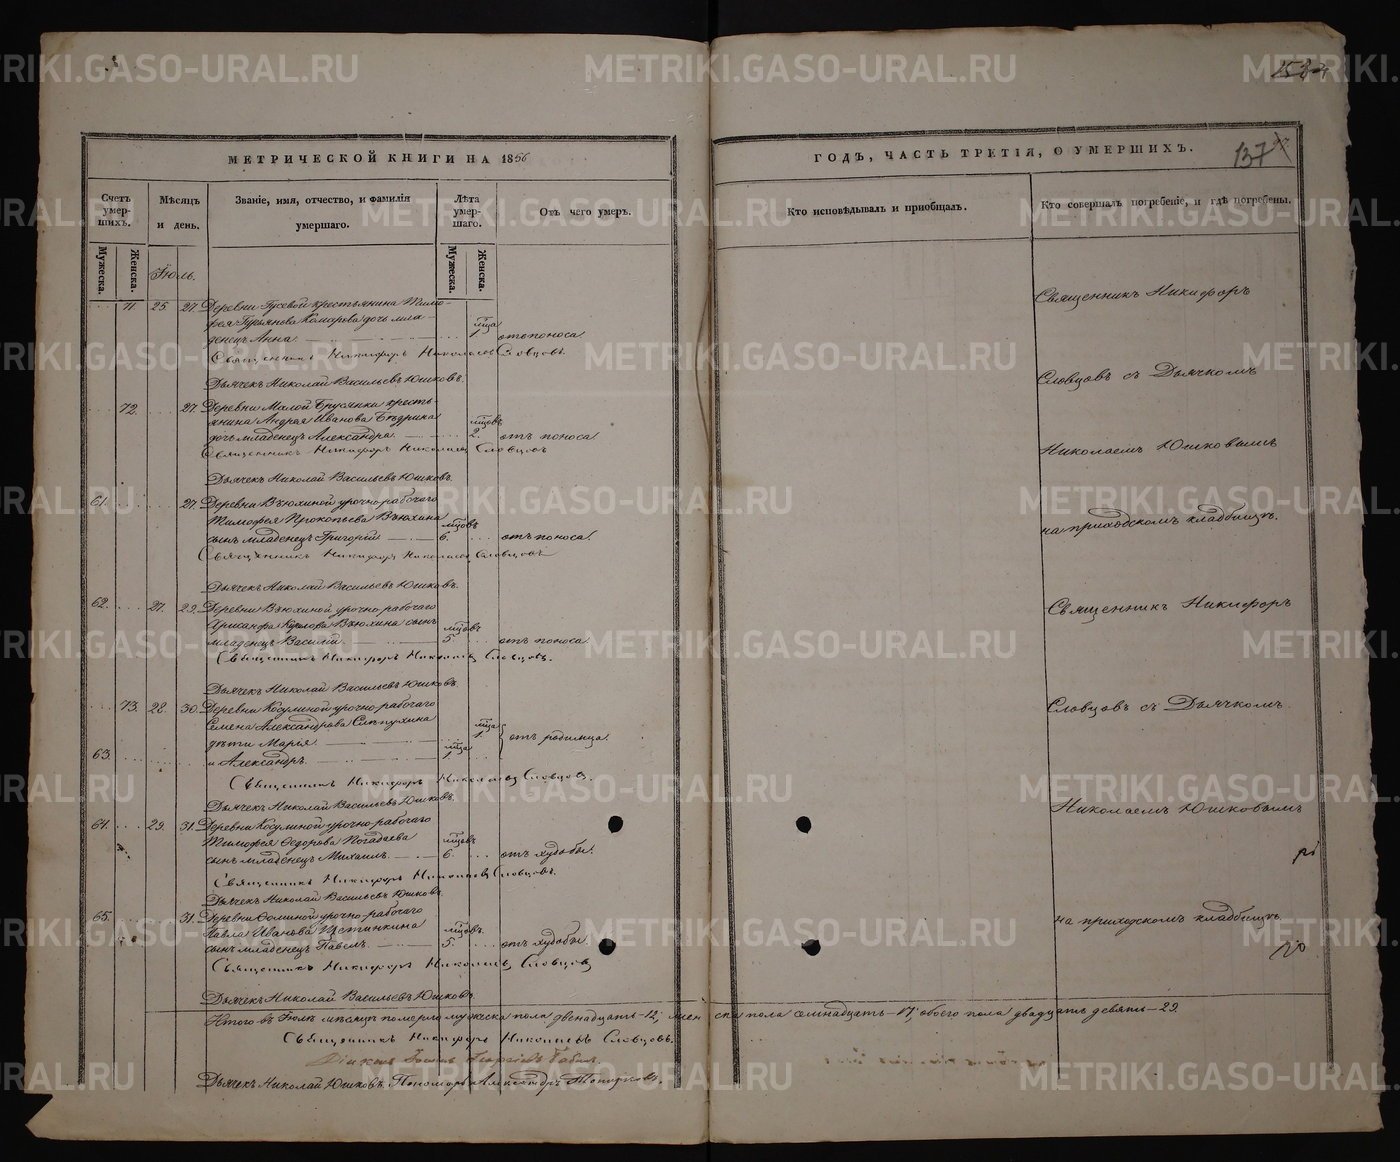 153
МЕТРИЧЕСКОЙ КНИГИ НА 1856
ГОДЪ, ЧАСТЬ ТРЕТІЯ, О УМЕРШИХЪ.
137
Счетъ умер-шихъ.
Мѣсяцъ и день.
Званіе, имя, отчество, и фамилія умершаго.
Лѣта умер-шаго.
Отъ чего умеръ.
Кто исповѣдывалъ и приобщалъ.
Кто совершалъ погребеніе, и гдѣ погребены.
Мужеска.
Женска.
Мужеска.
Женска.
Іюль.
71. 25. 27. Деревни Гусевой крестьянина Тимо-
фея Гурьянова Комарова дочь мла-
денецъ Анна. мца 1. отъ поноса
Священникъ Никифоръ Николаевъ Словцовъ.
Дьячекъ Николай Васильевъ Юшковъ.
72. 27. Деревни Малой Брусянки кресть-
янина Андрея Иванова
дочь младенецъ Александра. мцовъ 2. отъ поноса.
Священникъ Никифоръ Николаевъ Словцовъ
Дьячекъ Николай Васильевъ Юшковъ.
61. 27. Деревни Вьюхиной урочно-рабочаго
Тимофея Прокопьева Вьюхина
сынъ младенецъ Григорій. мцовъ 6. отъ поноса.
Священникъ Никифоръ Николаевъ Словцовъ
Дьячекъ Николай Васильевъ Юшковъ.
62. 27. 29. Деревни Вьюхиной урочно-рабочаго
Вьюхина сынъ
младенецъ Василій. мцовъ 5. отъ поноса.
Священникъ Никифоръ Николаевъ Словцовъ.
Дьячекъ Николай Васильевъ Юшковъ.
73. 28. 30. Деревни Косулиной урочно-рабочаго
Семена Александрова Слѣпухина
дѣти Марья. мца 1. отъ родимца.
63. и Александръ. мца 1.
Священникъ Никифоръ Николаевъ Словцовъ.
Дьячекъ Николай Васильевъ Юшковъ.
64. 29. 31. Деревни Косулиной урочно-рабочаго
Тимофея Ѳедорова Погадаева
сынъ младенецъ Михаилъ. мцовъ 6. отъ худобы.
Священникъ Никифоръ Николаевъ Словцовъ.
Дьячекъ Николай Васильевъ Юшковъ.
65. 31. Деревни Ѳоминой урочно-рабочаго
Павла Иванова
сынъ младенецъ Павелъ. мцовъ 5. отъ худобы.
Священникъ Никифоръ Николаевъ Словцовъ
Дьячекъ Николай Васильевъ Юшковъ
Священникъ Никифоръ
Словцовъ съ Дьячкомъ
Николаемъ Юшковымъ
на приходскомъ кладбищѣ.
Священникъ Никифоръ
Словцовъ съ Дьячкомъ
Николаемъ Юшковымъ
на приходскомъ кладбищѣ.
Итого въ Іюлѣ мѣсяцѣ померло мужеска пола двенадцать-12, женска пола семнадцать-17, обоего пола двадцать девять-29.
Священникъ Никифоръ Николаевъ Словцовъ.
Дьячекъ Николай Юшковъ. Пономарь Александръ Топорковъ.
METRIKI.GASO-URAL.RU